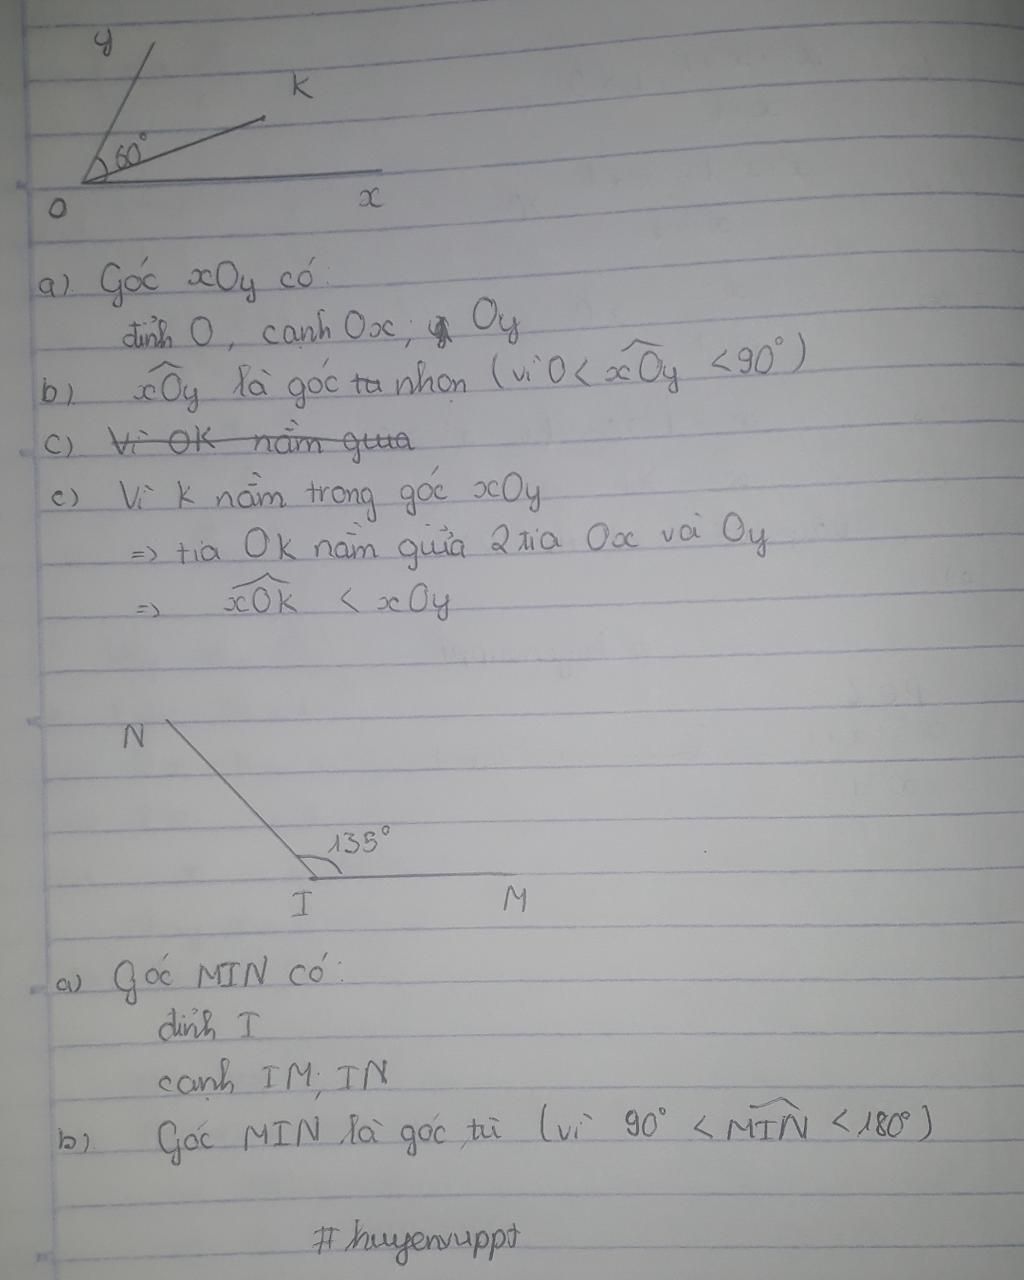 y
K
60°
O
x
a) Góc xOy có:
đỉnh O, cạnh Ox; Oy
b) xOy là góc ta nhọn (vì 0 < xOy < 90°)
c) Vì OK nằm giua
c) Vì K nằm trong góc xOy
=> tia OK nằm giữa 2 tia Ox và Oy
=> xOK < xOy
N
135°
I
M
a) Góc MIN có:
đỉnh I
cạnh IM; IN
b) Góc MIN là góc tù (vì 90° < MIN < 180°)
#huyenvuppt